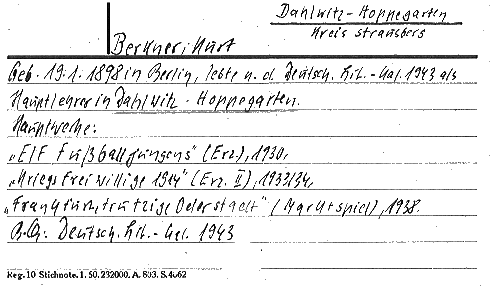 Dahlwitz-Hoppegarten
Kreis Strausberg
Berkner, Kurt
Geb. 19.1.1898 in Berlin, lebte n. d. Deutsch. Lit.-Kal. 1943 als
Hauptlehrer in Dahlwitz-Hoppegarten.
Hauptwerke:
„Elf Fußballjungens" (Erz), 1930,
„Kriegsfreiwillige 1914" (Erz. II), 1933/34,
„Frankfurt, trutzige Oderstadt" (Marktspiel), 1938.
B.Qu: Deutsch. Lit.-Kal. 1943
Reg. 10 Stichnote. 1. 50. 232000. A. 803. S. 4662